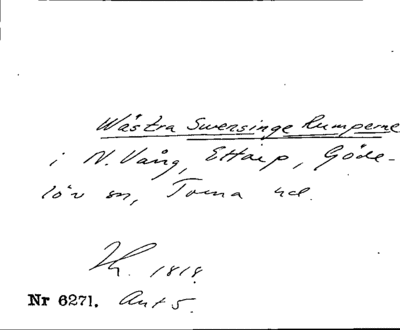 Wästra Swensinge Rumperne
i N. Vång, Ettarp, Göde-
löv sn, Torna hd.
1818.
Nr 6271. Akt 5.